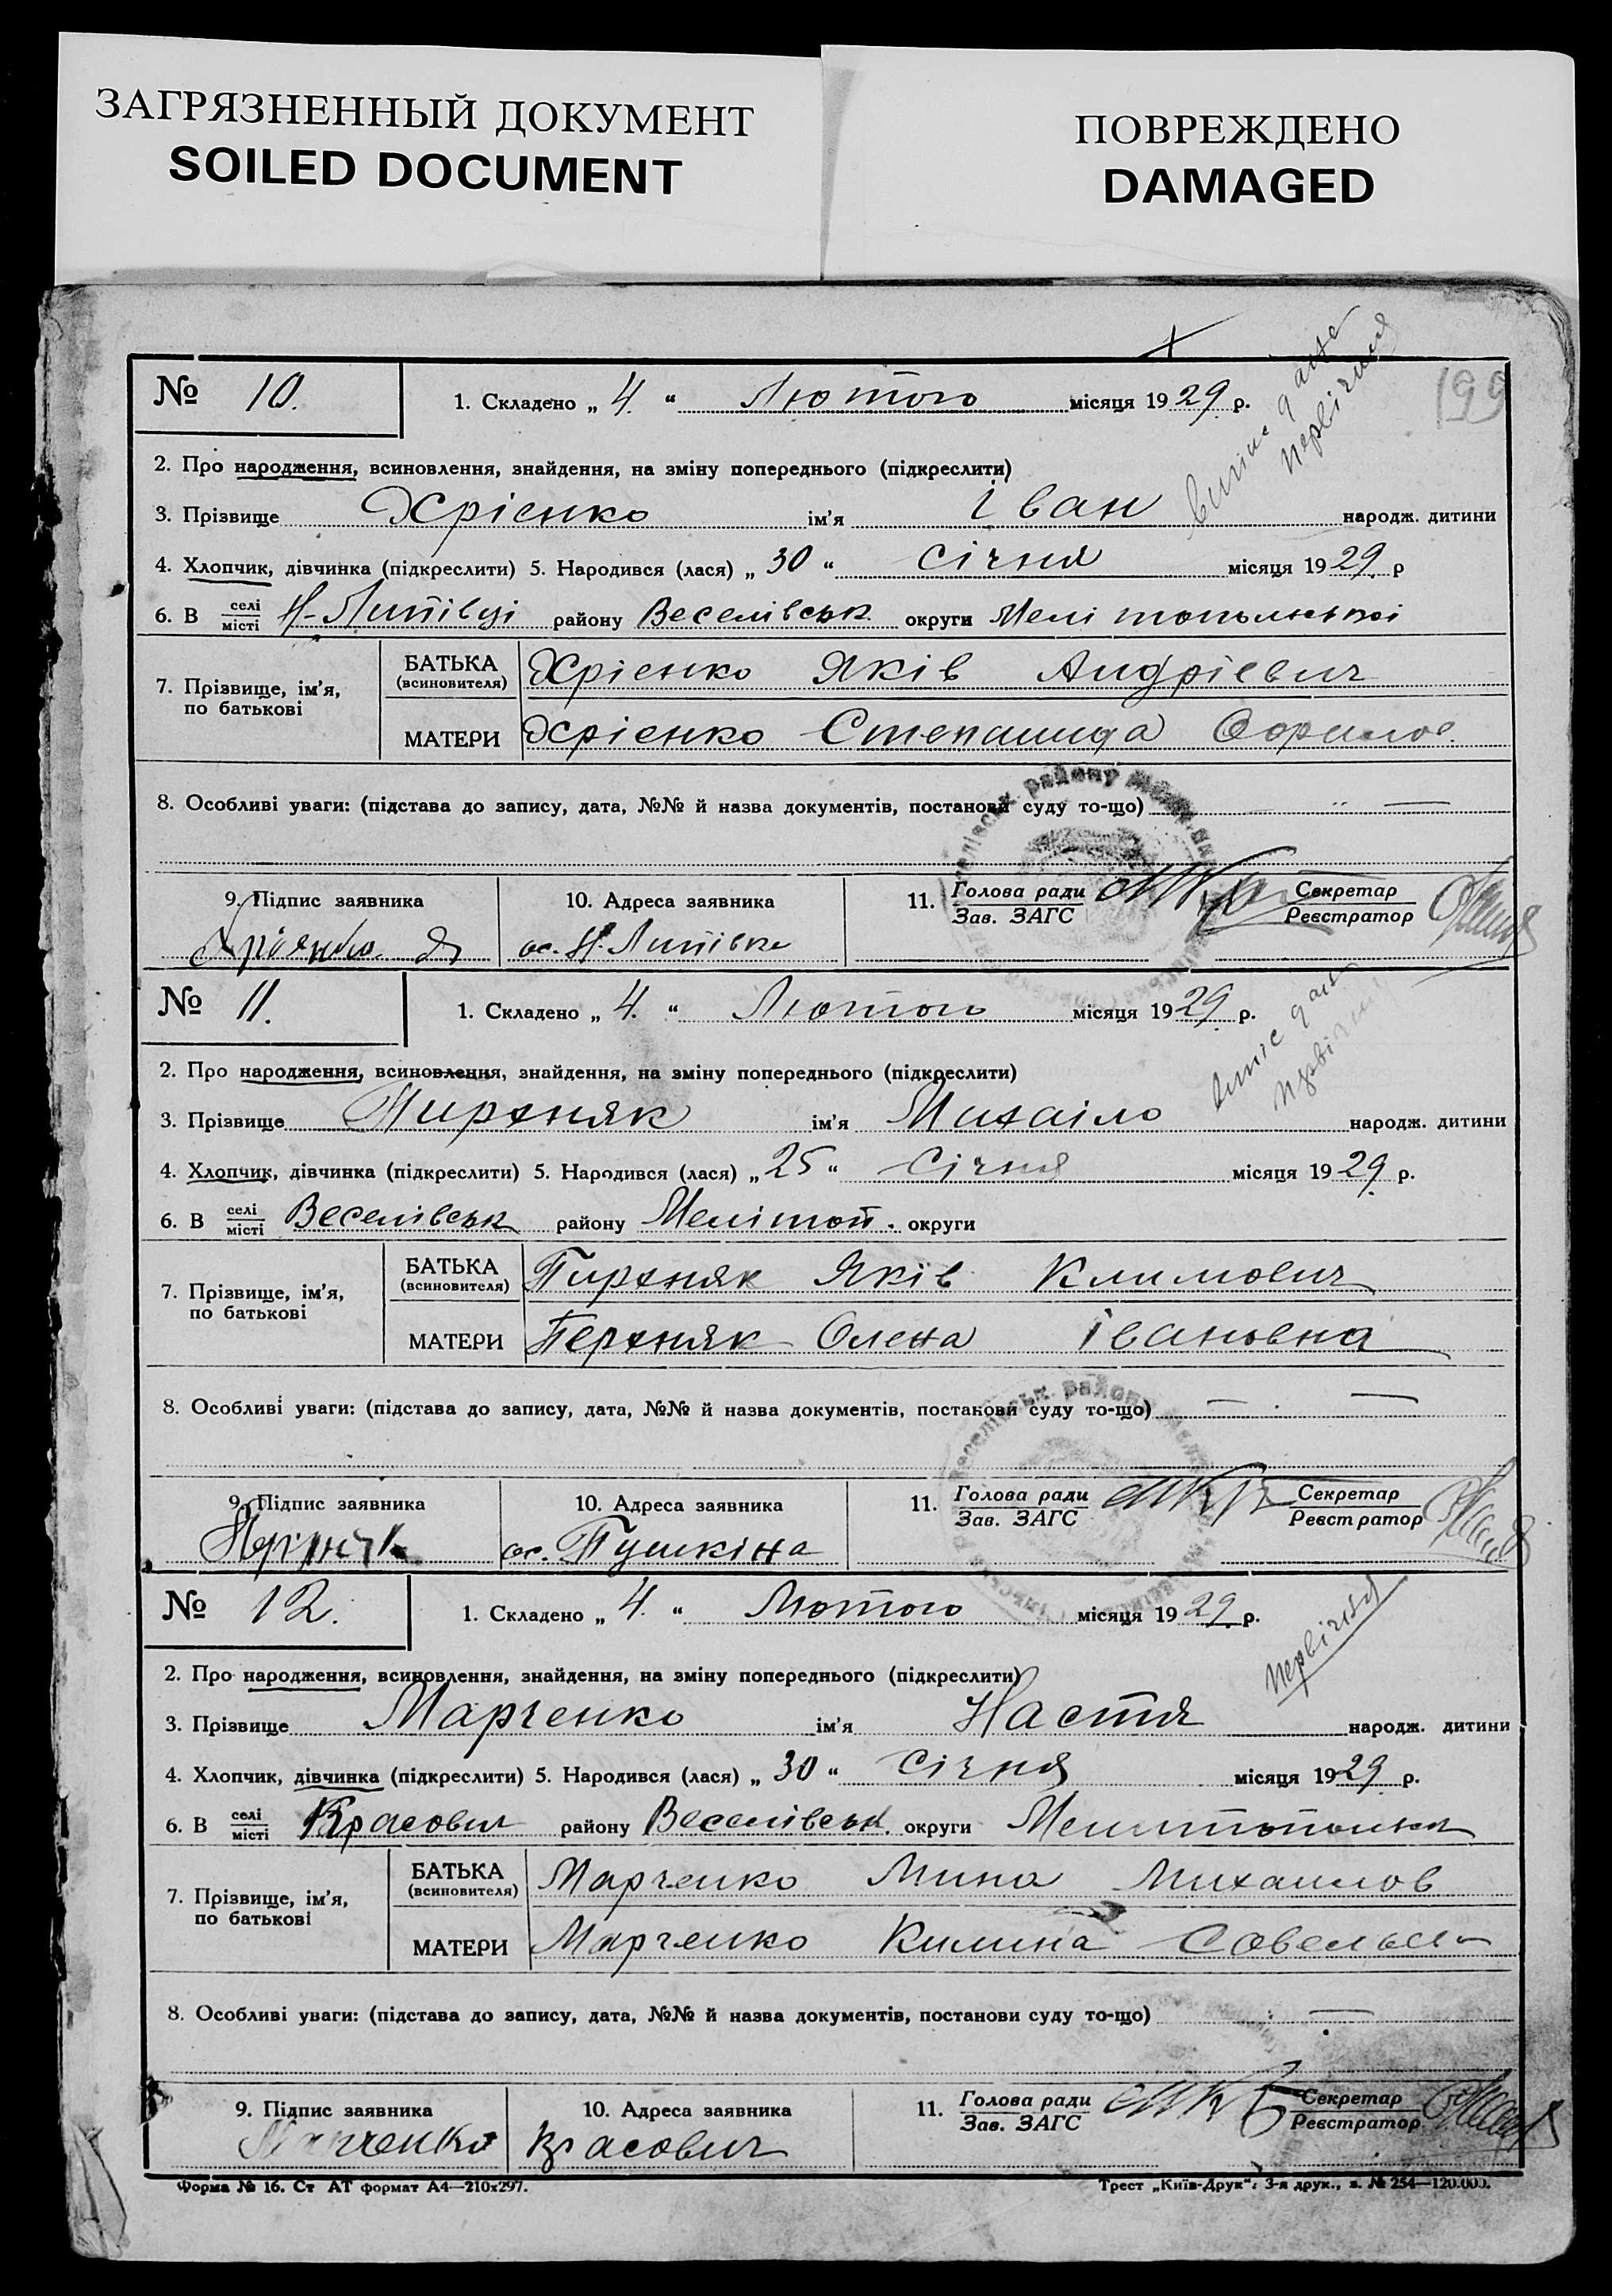 ЗАГРЯЗНЕННЫЙ ДОКУМЕНТ
SOILED DOCUMENT
ПОВРЕЖДЕНО
DAMAGED
199
№ 10. 1. Складено „ 4. “ Лютого місяця 1929 р.
2. Про народження, всиновлення, знайдення, на зміну попереднього (підкреслити)
3. Прізвище Хрієнко ім'я Іван народж. дитини
4. Хлопчик, дівчинка (підкреслити) 5. Народився (лася) „ 30 “ січня місяця 1929 р
6. В селі/місті Н-Липівці району Веселівськ округи Мелітопольської
7. Прізвище, ім'я, по батькові
БАТЬКА (всиновителя) Хрієнко Яків Андрієвич
МАТЕРИ Хрієнко Степанида
8. Особливі уваги: (підстава до запису, дата, №№ й назва документів, постанови суду то-що)
9. Підпис заявника 10. Адреса заявника 11. Голова ради Секретар
Зав. ЗАГС Реєстратор
ос. Н. Липівка
№ 11. 1. Складено „ 4. “ Лютого місяця 1929 р.
2. Про народження, всиновлення, знайдення, на зміну попереднього (підкреслити)
3. Прізвище Пирхняк ім'я Михаіло народж. дитини
4. Хлопчик, дівчинка (підкреслити) 5. Народився (лася) „ 25 “ Січня місяця 1929 р.
6. В селі/місті Веселівськ району Мелітоп. округи
7. Прізвище, ім'я, по батькові
БАТЬКА (всиновителя) Пирхняк Яків Климович
МАТЕРИ Перхняк Олена Івановна
8. Особливі уваги: (підстава до запису, дата, №№ й назва документів, постанови суду то-що)
9. Підпис заявника 10. Адреса заявника 11. Голова ради Секретар
Зав. ЗАГС Реєстратор
ос. Пушкіна
№ 12. 1. Складено „ 4. “ Лютого місяця 1929 р.
Первічна
2. Про народження, всиновлення, знайдення, на зміну попереднього (підкреслити)
3. Прізвище Марченко ім'я Настя народж. дитини
4. Хлопчик, дівчинка (підкреслити) 5. Народився (лася) „ 30 “ Січня місяця 1929 р.
6. В селі/місті району Веселівськ. округи Мелитопольск
7. Прізвище, ім'я, по батькові
БАТЬКА (всиновителя) Марченко Мина Михаилов
МАТЕРИ Марченко Килина
8. Особливі уваги: (підстава до запису, дата, №№ й назва документів, постанови суду то-що)
9. Підпис заявника 10. Адреса заявника 11. Голова ради Секретар
Зав. ЗАГС Реєстратор
Марченко
Форма № 16. Ст АТ формат А4—210х297. Трест „Київ-Друк“: 3-я друк., з. № 254—120.000.